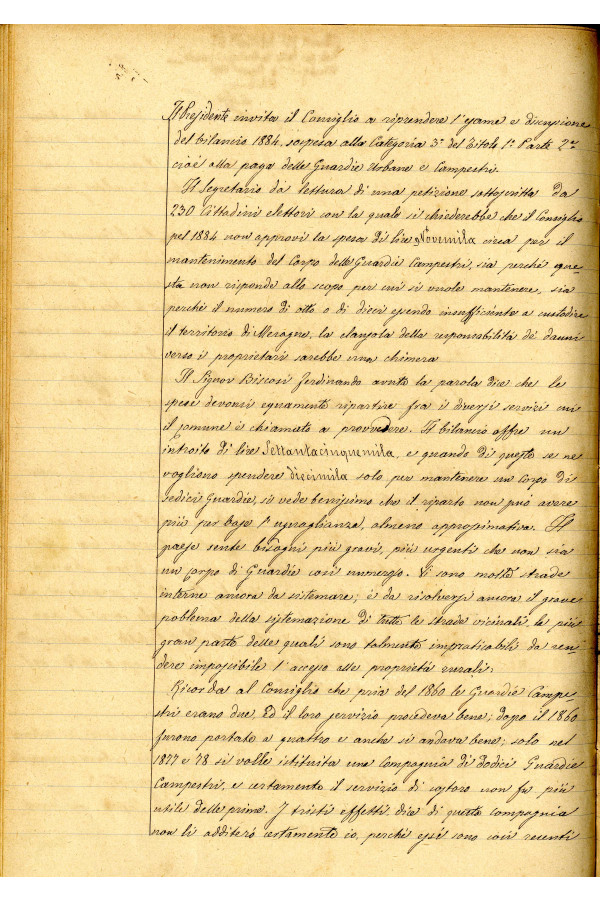 Il Presidente invita il Consiglio a riprendere l'esame e discussione
del bilancio 1884, sospesa alla Categoria 3ª del Titolo 1º Parte 2ª
cioè alla paga delle Guardie Urbane e Campestri.
Il Segretario dà lettura di una petizione sottoscritta da
230 Cittadini elettori con la quale si chiederebbe che il Consiglio
pel 1884 non approvi la spesa di lire Novemila circa per il
mantenimento del Corpo delle Guardie Campestri, sia perché que=
sta non risponde allo scopo per cui si vuole mantenere, sia
perché il numero di otto o di dieci essendo insufficiente a custodire
il territorio di Mesagne, la clausola della responsabilità dei danni
verso i proprietari sarebbe una chimera
Il Signor Biscosi Ferdinando avuta la parola dice che le
spese devonsi egualmente ripartire fra i diversi servizi cui
il comune è chiamato a provvedere. Il bilancio offre un
introito di lire Settantacinquemila, e quando di queste se ne
vogliono spendere diecimila solo per mantenere un corpo di
sedici Guardie, si vede benissimo che il riparto non può avere
più per base l'uguaglianza, almeno approssimativa. Il
paese sente bisogni più gravi, più urgenti che non sia
un corpo di Guardie così numeroso. Vi sono molte strade
interne ancora da sistemare; è da risolversi ancora il grave
poblema della sistemazione di tutte le strade vicinali, la più
gran parte delle quali sono talmente impraticabili da ren=
dere impossibile l'accesso alle proprietà rurali.
Ricorda al Consiglio che pria del 1860 le Guardie Campe
stri erano due. Ed il loro servizio procedeva bene; dopo il 1860
furono portate a quattro e anche si andava bene; solo nel
1877 e 78 si volle istituita una Compagnia di dodici Guardie
Campestri, e certamente il servizio di custodia non fu più
utile delle prime. I tristi effetti, dice di questa compagnia
non li additerò certamente io, perché essi sono così recenti